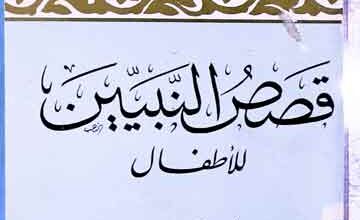 قَصَصُ النَّبِيِّينَ
للأطفال